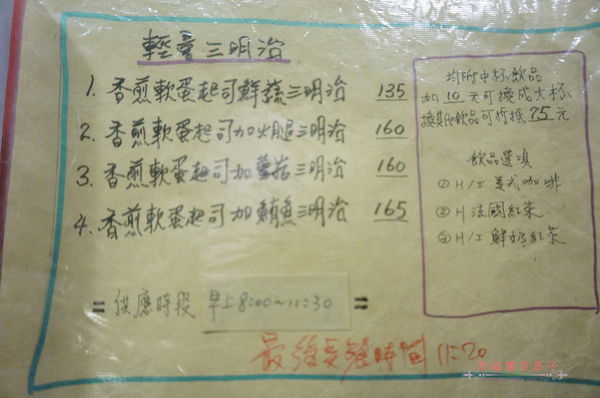 輕量三明治
1. 香煎軟蛋起司鮮蔬三明治 135
2. 香煎軟蛋起司加火腿三明治 160
3. 香煎軟蛋起司加蘑菇三明治 160
4. 香煎軟蛋起司加鮪魚三明治 165
= 供應時段 早上8:00~11:30 =
最後点餐時間 11:20
均附中杯飲品
加 10 元可換成大杯
換其他飲品可折抵 75 元
飲品選項
① H/I 美式咖啡
② H 法國紅茶
③ H/I 鮮奶紅茶